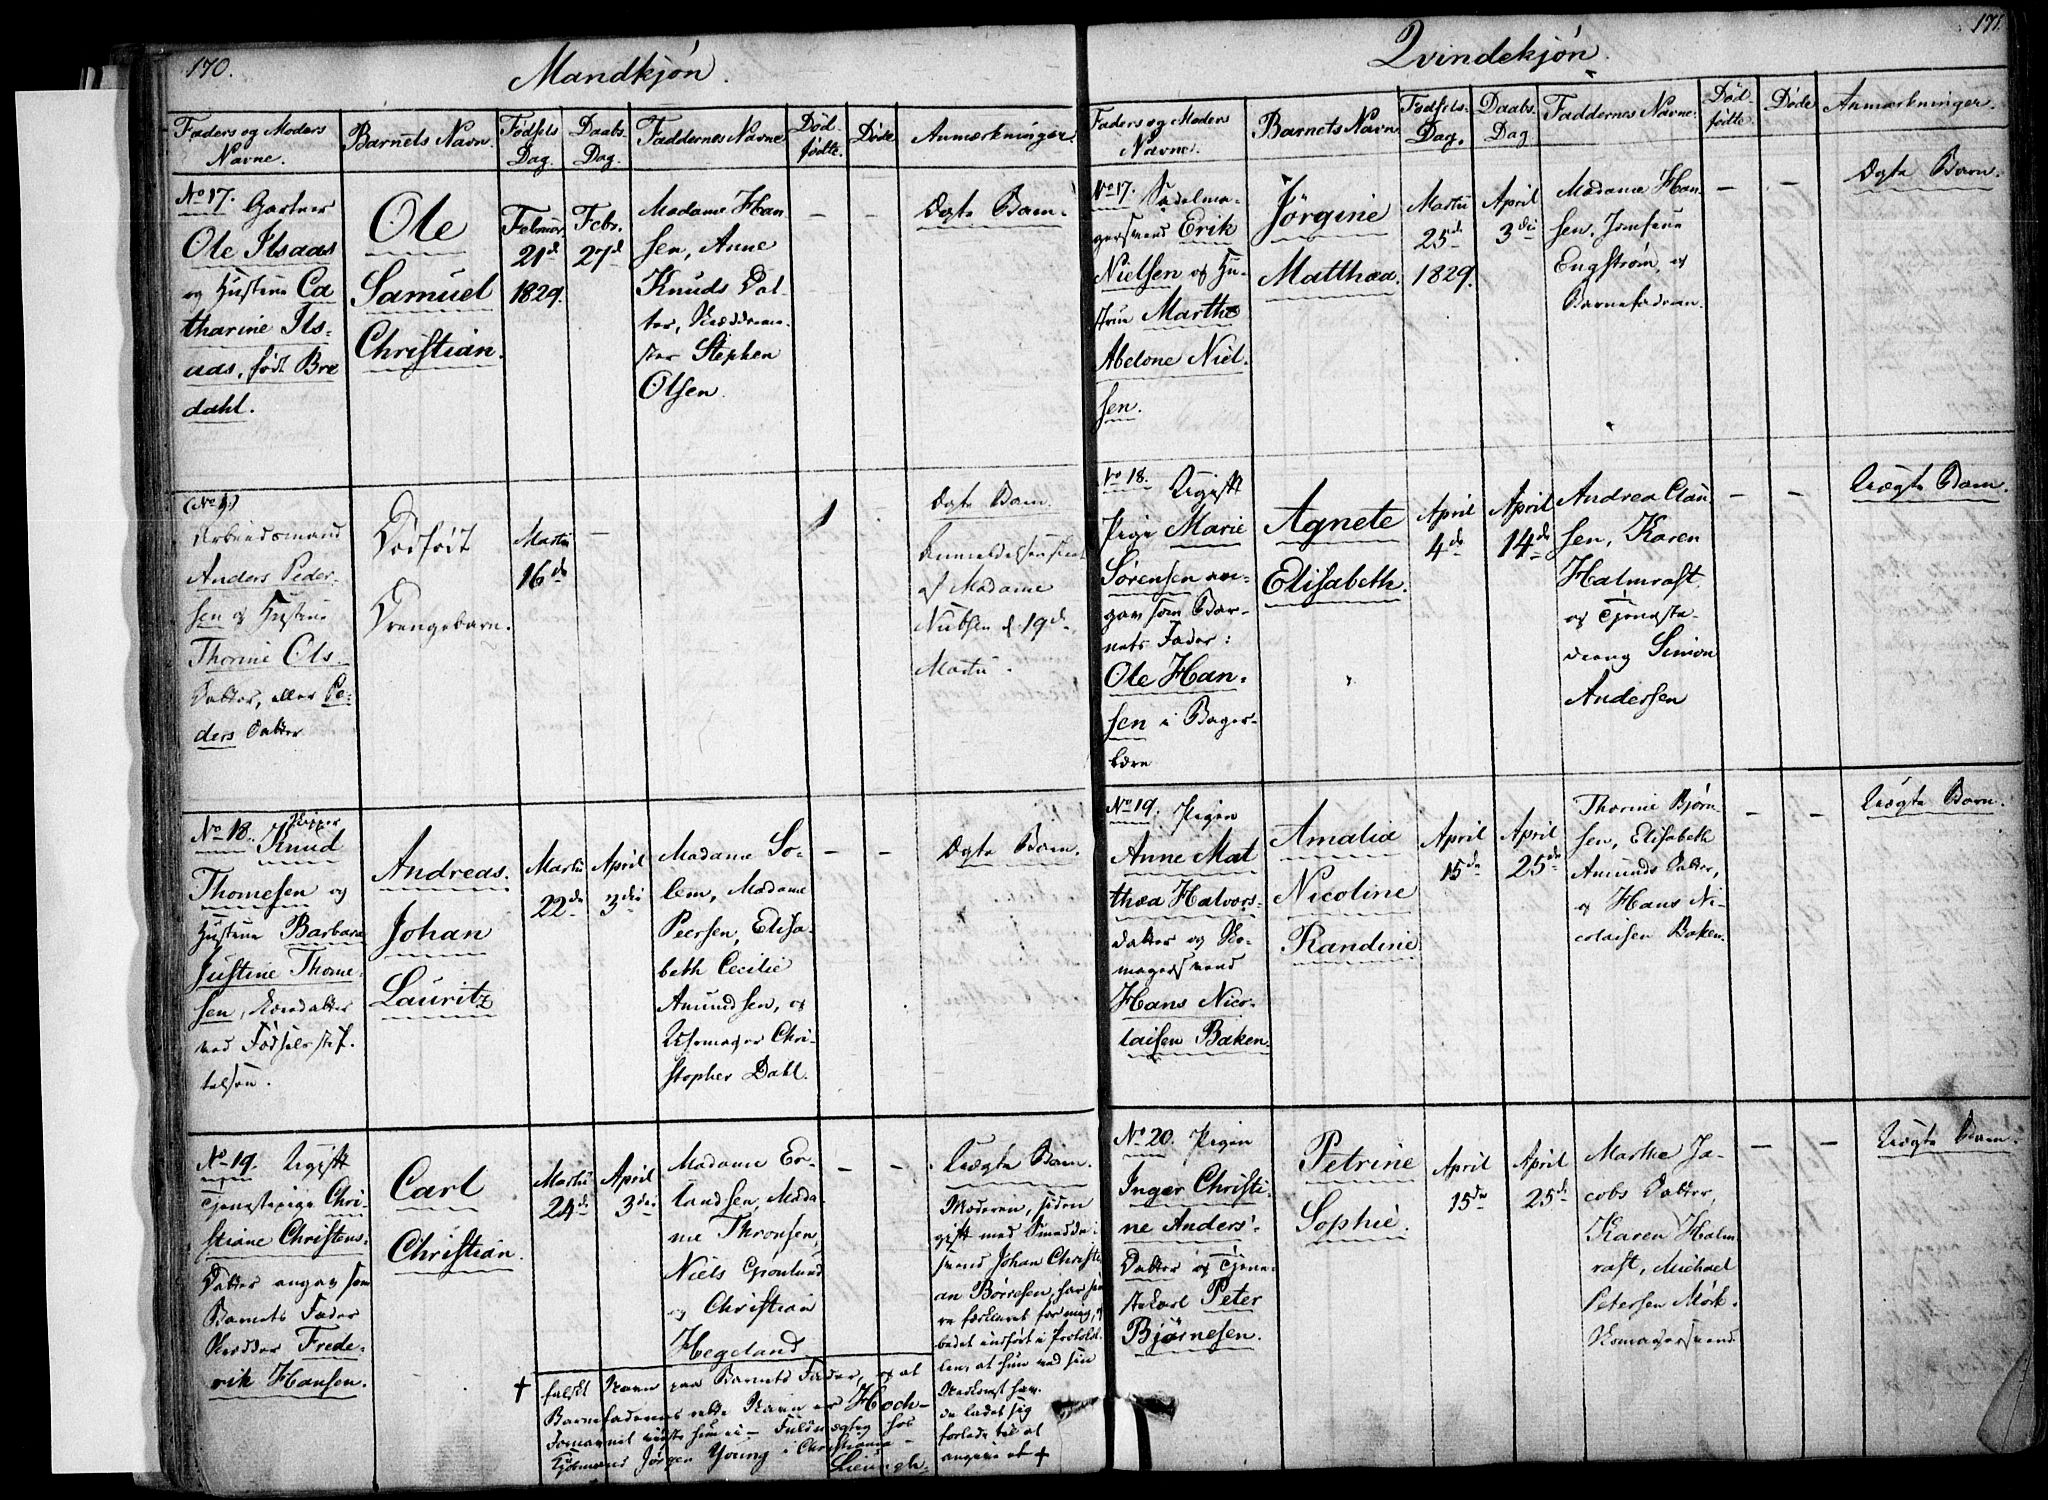 170.
Mandkjøn.
Faders og Moders
Navne.
Barnets Navn.
Fødsels
Dag.
Daabs
Dag.
Faddernes Navne
Død
fødte.
Døde
Anmærkninger.
No 17. Gartner
Ole Ilsaas
og Hustrue Ca
tharine Ils-
aas, født Bre
dahl.
Ole
Samuel
Christian.
Februar
21d
1829.
Febr.
27d
Madame Han
sen, Anne
Knuds Dat-
ter,
Stephen
Olsen.
—
—
Ægte Barn.
(No 1)
Arbeidsmand
Anders Peder-
sen og Hustrue
Thorine Ols-
Datter, eller Pe-
ders Datter
Dødfødt
Drengebarn.
Martii
16de
—
1
Ægte Barn.
af Madame
d. 19d
Martii.
No 18. Skipper
Knud
Thomesen og
Hustrue Barbara
Justine Thome-
sen,
ved Fødselsstif-
telsen.
Andreas
Johan
Lauritz
Martii
22de
April
3die
Madame So-
lem, Madame
Peersen, Elisa-
beth Cecilie
Amundsen, og
Uhrmager Chri-
stopher Dahl.
—
—
Ægte Barn.
No 19. Ugift
Tjenestepige Chri-
stiane Christens-
Datter angav som
Barnets Fader
Frede-
rik Hansen.
Carl
Christian.
Martii
24de
April
3die
Madame Er-
landsen, Mada-
me Thronsen,
Niels Grønlund
og Christian
Hegeland
—
—
Uægte Barn.
Moderen, siden
gift med Smedde-
svend Johan Christi
an Børresen, har sene
re forklaret for mig, og
bedet indført i Protokol-
len, at hun ved sin
Nedkomst havde
ladet sig
forlede til at
angive et +
+ falskt Navn paa Barnets Fader, og at
Barnefaderens rette Navn er Hoch-
hos
Kjøbmand Jørgen Young i Christiania
171.
Qvindekjøn.
Faders og Moders
Navne.
Barnets Navn
Fødsels-
Dag.
Daabs-
Dag
Faddernes Navne.
Død-
fødte
Døde
Anmærkninger.
No 17. Sadelma-
gersvend Erik
Nielsen og Hu-
strue Marthe
Abelone Niel-
sen.
Jørgine
Matthæa.
Martii
25de
1829.
April
3die
Madame Han-
sen, Jomfrue
Engstrøm, og
Barnefaderen.
—
—
Ægte Barn.
No 18. Ugift
Pige Marie
Sørensen an-
gav som Bar-
nets Fader:
Ole Han-
sen i Bager-
lære
Agnete
Elisabeth.
April
4de
April
14de
Andrea Clau-
sen, Karen
Halmrast,
og Tjeneste-
dreng Simon
Andersen
—
—
Uægte Barn.
No 19. Pigen
Anne Mat
thæa Halvors-
datter og Sko-
magersvend
Hans Nico-
laisen Baken.
Amalia
Nicoline
Randine
April
15de
April
25de
Thorine Bjørn-
sen, Elisabeth
Amunds Datter,
og Hans Ni-
colaisen Baken
—
—
Uægte Barn.
No 20. Pigen
Inger Christi-
ne Anders-
Datter og Tjene-
stekarl Peter
Bjørnesen.
Petrine
Sophie.
April
15de
April
25d
Marthe Ja-
cobs Datter,
Karen Halm
rast, Michael
Petersen Mørk
Skomagersvend
—
—
Uægte Barn.